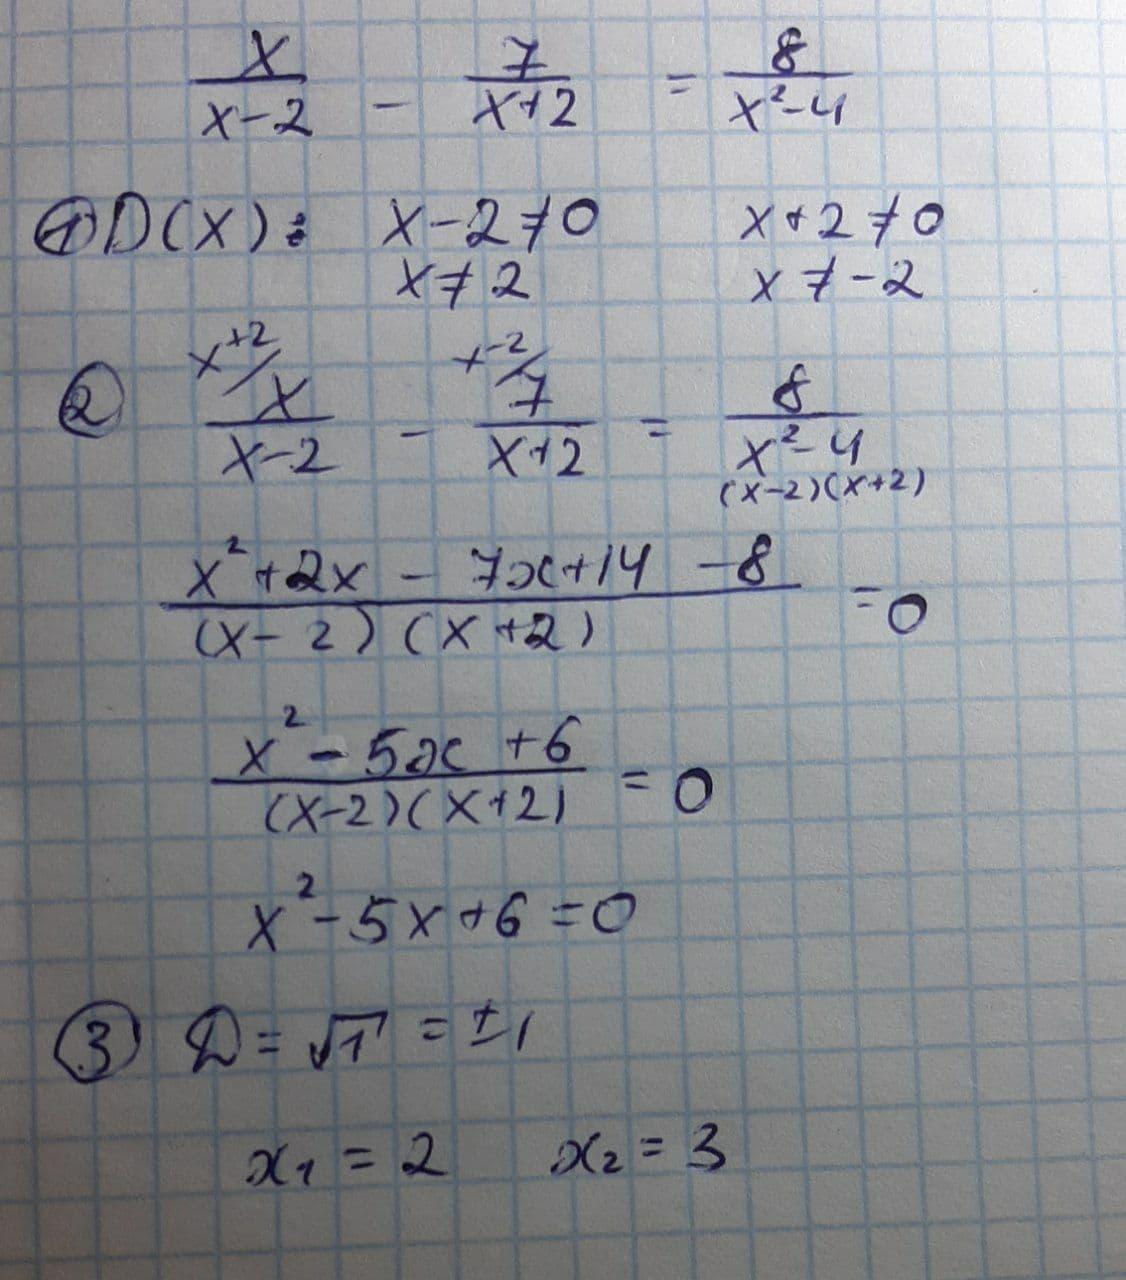 x/(x-2) - 7/(x+2) = 8/(x²-4)
① D(x): x-2≠0 x+2≠0
x≠2 x≠-2
② x+2/ x/(x-2) - x-2/ 7/(x+2) = 8/(x²-4)
(x-2)(x+2)
(x²+2x - 7x+14 -8)/((x-2)(x+2)) = 0
(x²-5x+6)/((x-2)(x+2)) = 0
x²-5x+6=0
③ D=√1 = ±1
x₁ = 2 x₂ = 3